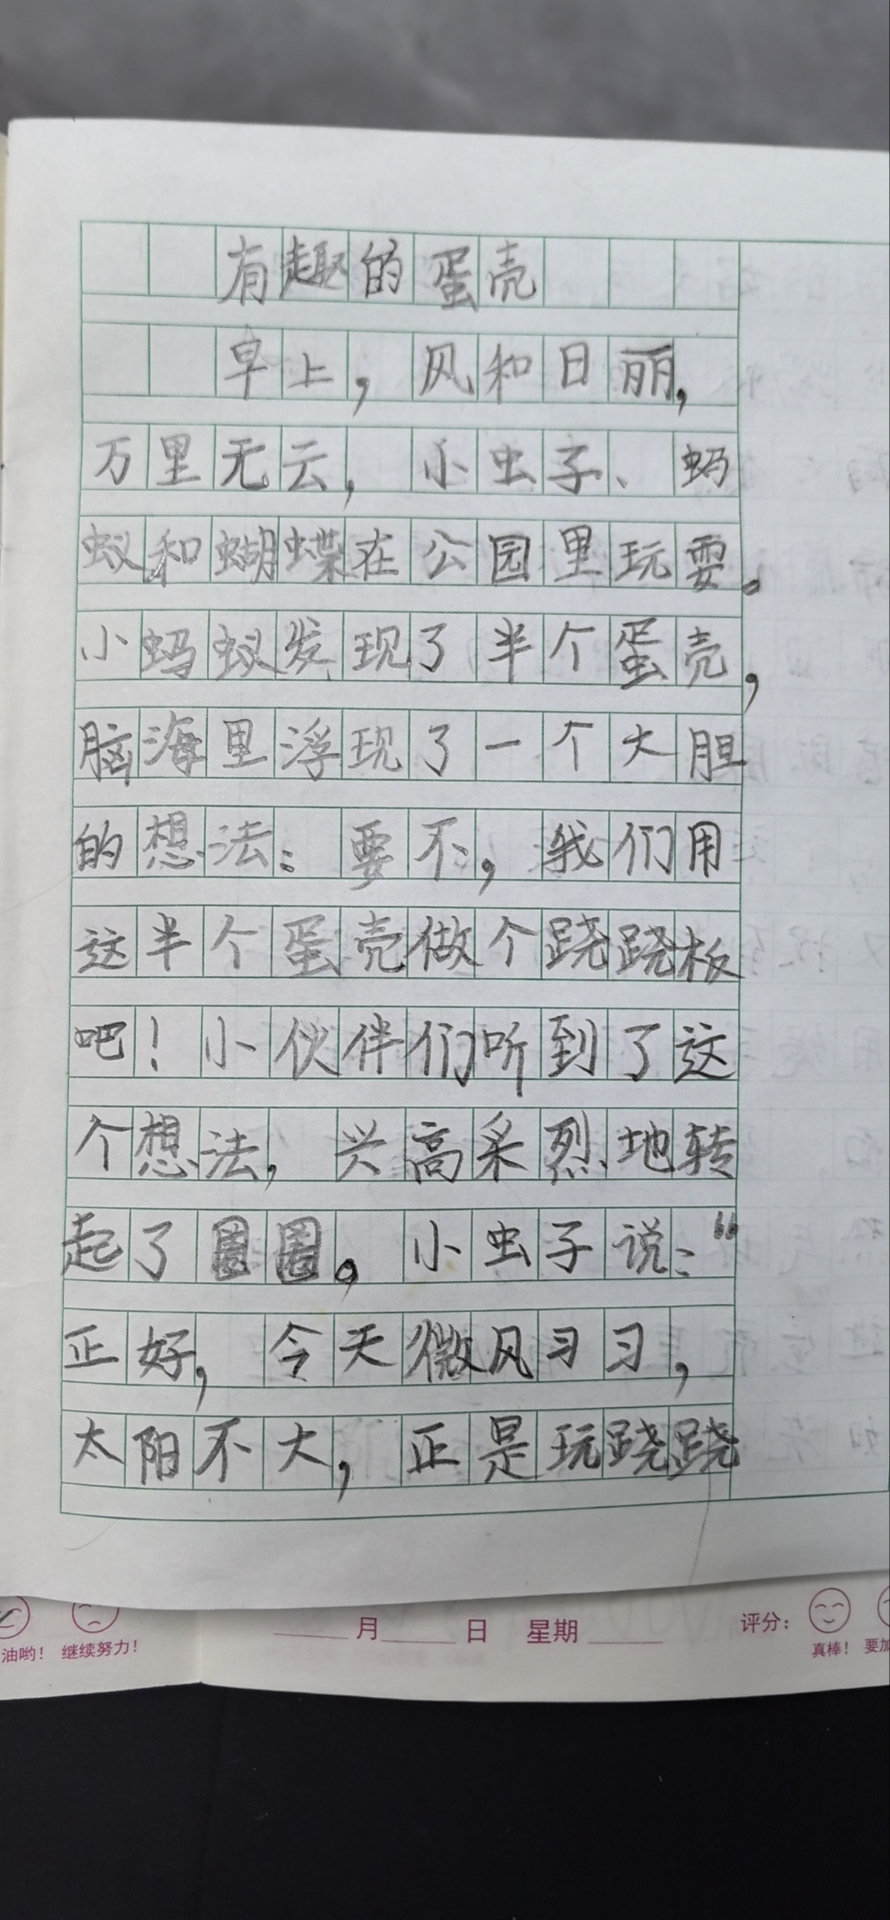 有趣的蛋壳
早上，风和日丽，
万里无云，小虫子、蚂
蚁和蝴蝶在公园里玩耍。
小蚂蚁发现了半个蛋壳，
脑海里浮现了一个大胆
的想法：要不，我们用
这半个蛋壳做个跷跷板
吧！小伙伴们听到了这
个想法，兴高采烈地转
起了圈圈。小虫子说：“
正好，今天微风习习，
太阳不大，正是玩跷跷
油哟！ 继续努力！
月 日 星期 评分：
真棒！ 要加